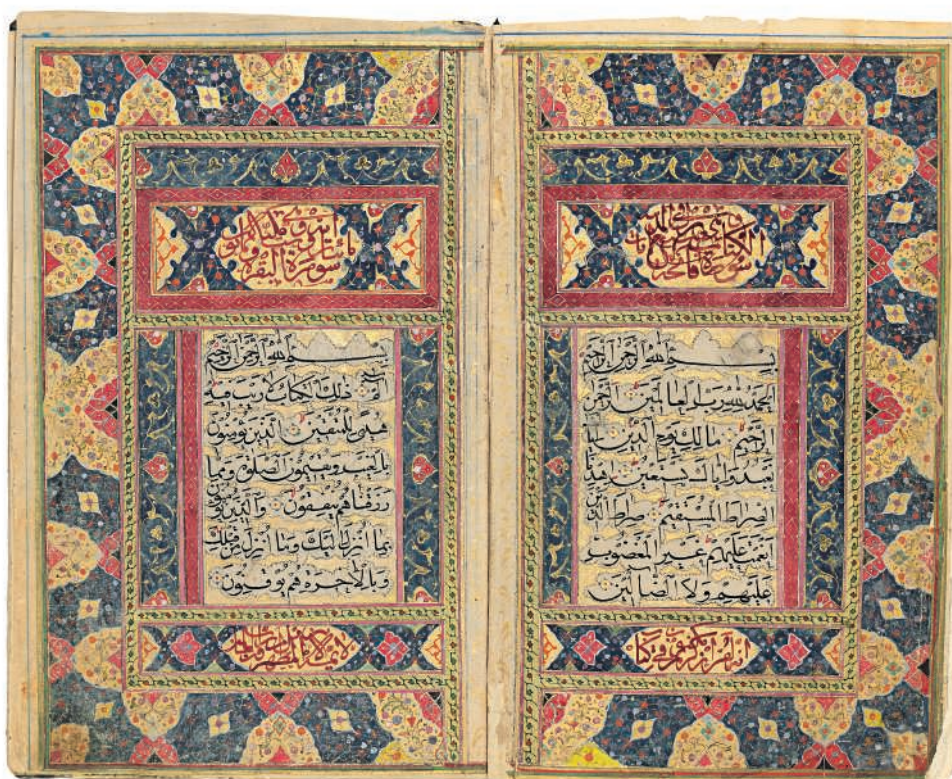 الكتاب
سورة فاتحة
بسم الله الرحمن الرحيم
الحمد لله رب العالمين الرحمن
الرحيم مالك يوم الدين اياك
نعبد واياك نستعين اهدنا
الصراط المستقيم صراط الذين
انعمت عليهم غير المغضوب
عليهم ولا الضالين
انه لقرآن كريم في كتاب
سورة البقرة
بسم الله الرحمن الرحيم
الم ذلك الكتاب لا ريب فيه
هدى للمتقين الذين يؤمنون
بالغيب ويقيمون الصلوة ومما
رزقناهم ينفقون والذين يؤمنون
بما انزل اليك وما انزل من قبلك
وبالاخرة هم يوقنون